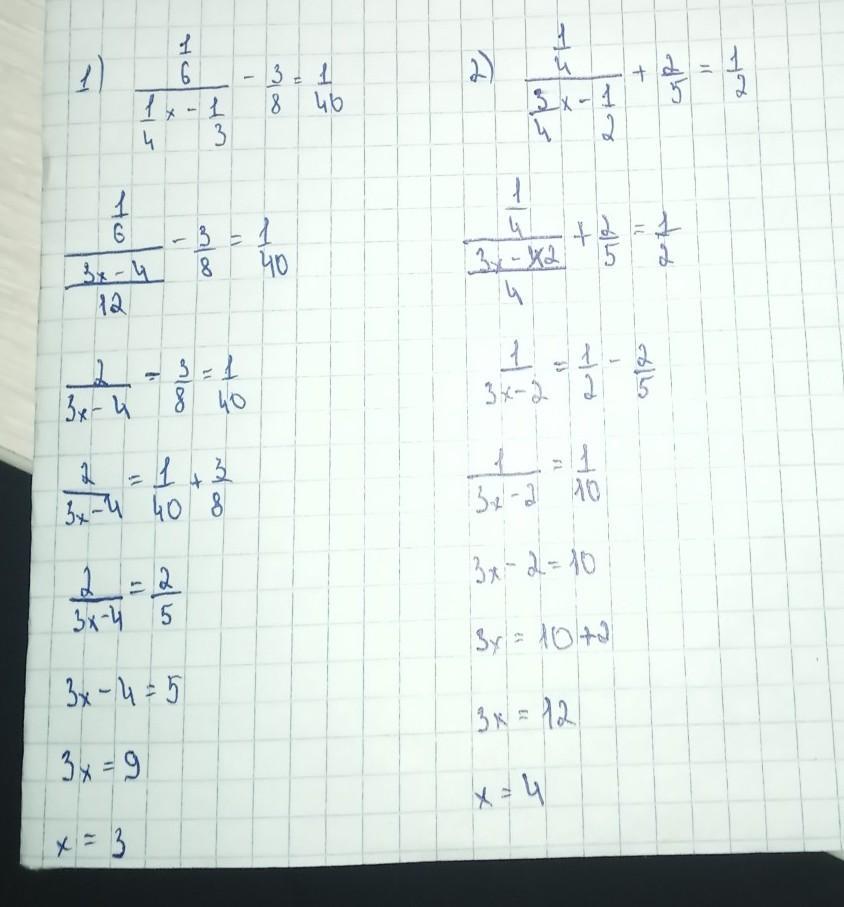 1) (1/6)/(1/4 x - 1/3) - 3/8 = 1/40
(1/6)/((3x - 4)/12) - 3/8 = 1/40
2/(3x - 4) - 3/8 = 1/40
2/(3x - 4) = 1/40 + 3/8
2/(3x - 4) = 2/5
3x - 4 = 5
3x = 9
x = 3
2) (1/4)/(3/4 x - 1/2) + 2/5 = 1/2
(1/4)/((3x - 2)/4) + 2/5 = 1/2
1/(3x - 2) = 1/2 - 2/5
1/(3x - 2) = 1/10
3x - 2 = 10
3x = 10 + 2
3x = 12
x = 4